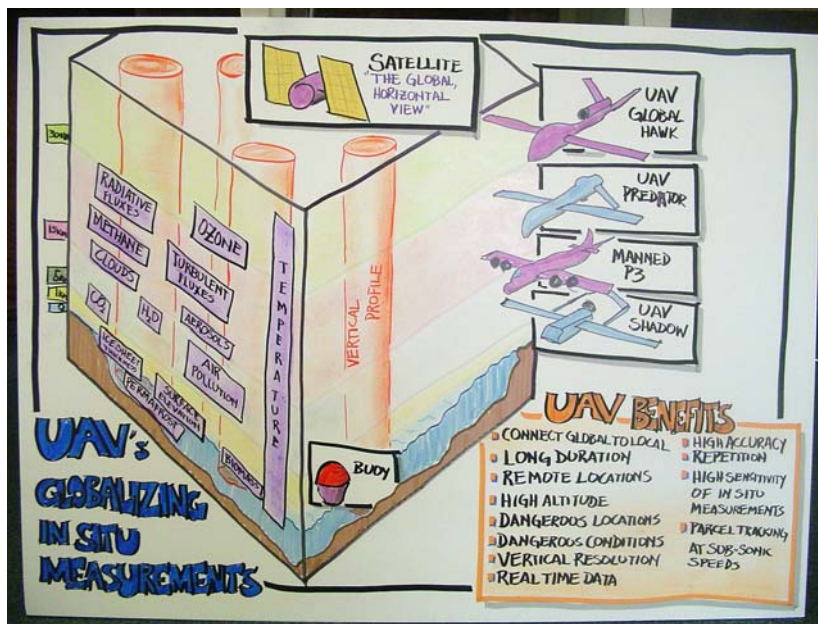 SATELLITE
"THE GLOBAL,
HORIZONTAL
VIEW"
UAV
GLOBAL
HAWK
UAV
PREDATOR
MANNED
P3
UAV
SHADOW
RADIATIVE
FLUXES
OZONE
METHANE
TURBULENT
FLUXES
CLOUDS
CO2
H2O
AEROSOLS
AIR
POLLUTION
ICE SHEET
SURFACE
ELEVATION
PERMAFROST
TEMPERATURE
VERTICAL
PROFILE
BUOY
UAV's
GLOBALIZING
IN SITU
MEASUREMENTS
UAV BENEFITS
CONNECT GLOBAL TO LOCAL
LONG DURATION
REMOTE LOCATIONS
HIGH ALTITUDE
DANGEROUS LOCATIONS
DANGEROUS CONDITIONS
VERTICAL RESOLUTION
REAL TIME DATA
HIGH ACCURACY
REPETITION
HIGH SENSITIVITY
OF IN SITU
MEASUREMENTS
PARCEL TRACKING
AT SUB-SONIC
SPEEDS